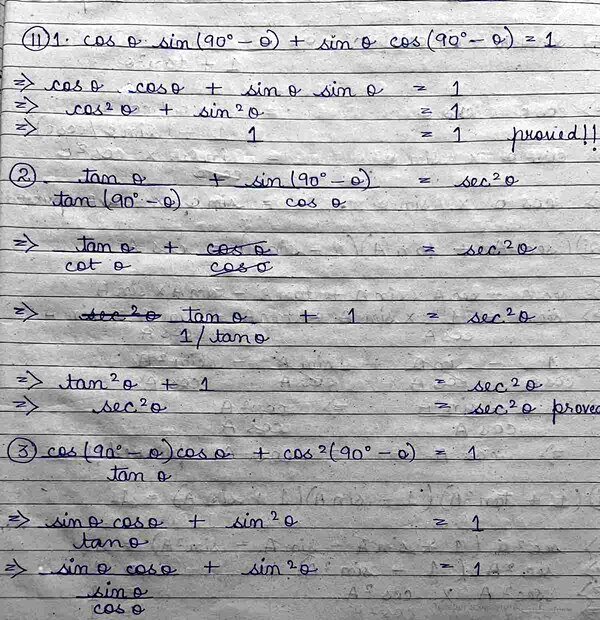 11) 1. cos θ sin(90° − θ) + sin θ cos(90° − θ) = 1
=> cos θ cos θ + sin θ sin θ = 1
=> cos²θ + sin²θ = 1
=> 1 = 1 proved!!
② tan θ / tan (90° − θ) + sin (90° − θ) / cos θ = sec²θ
=> tan θ / cot θ + cos θ / cos θ = sec²θ
=> sec²θ tan θ / 1/tan θ + 1 = sec²θ
=> tan²θ + 1 = sec²θ
=> sec²θ = sec²θ proved
③ cos(90° − θ) cos θ / tan θ + cos²(90° − θ) = 1
=> sin θ cos θ / tan θ + sin²θ = 1
=> sin θ cos θ / sin θ / cos θ + sin²θ = 1